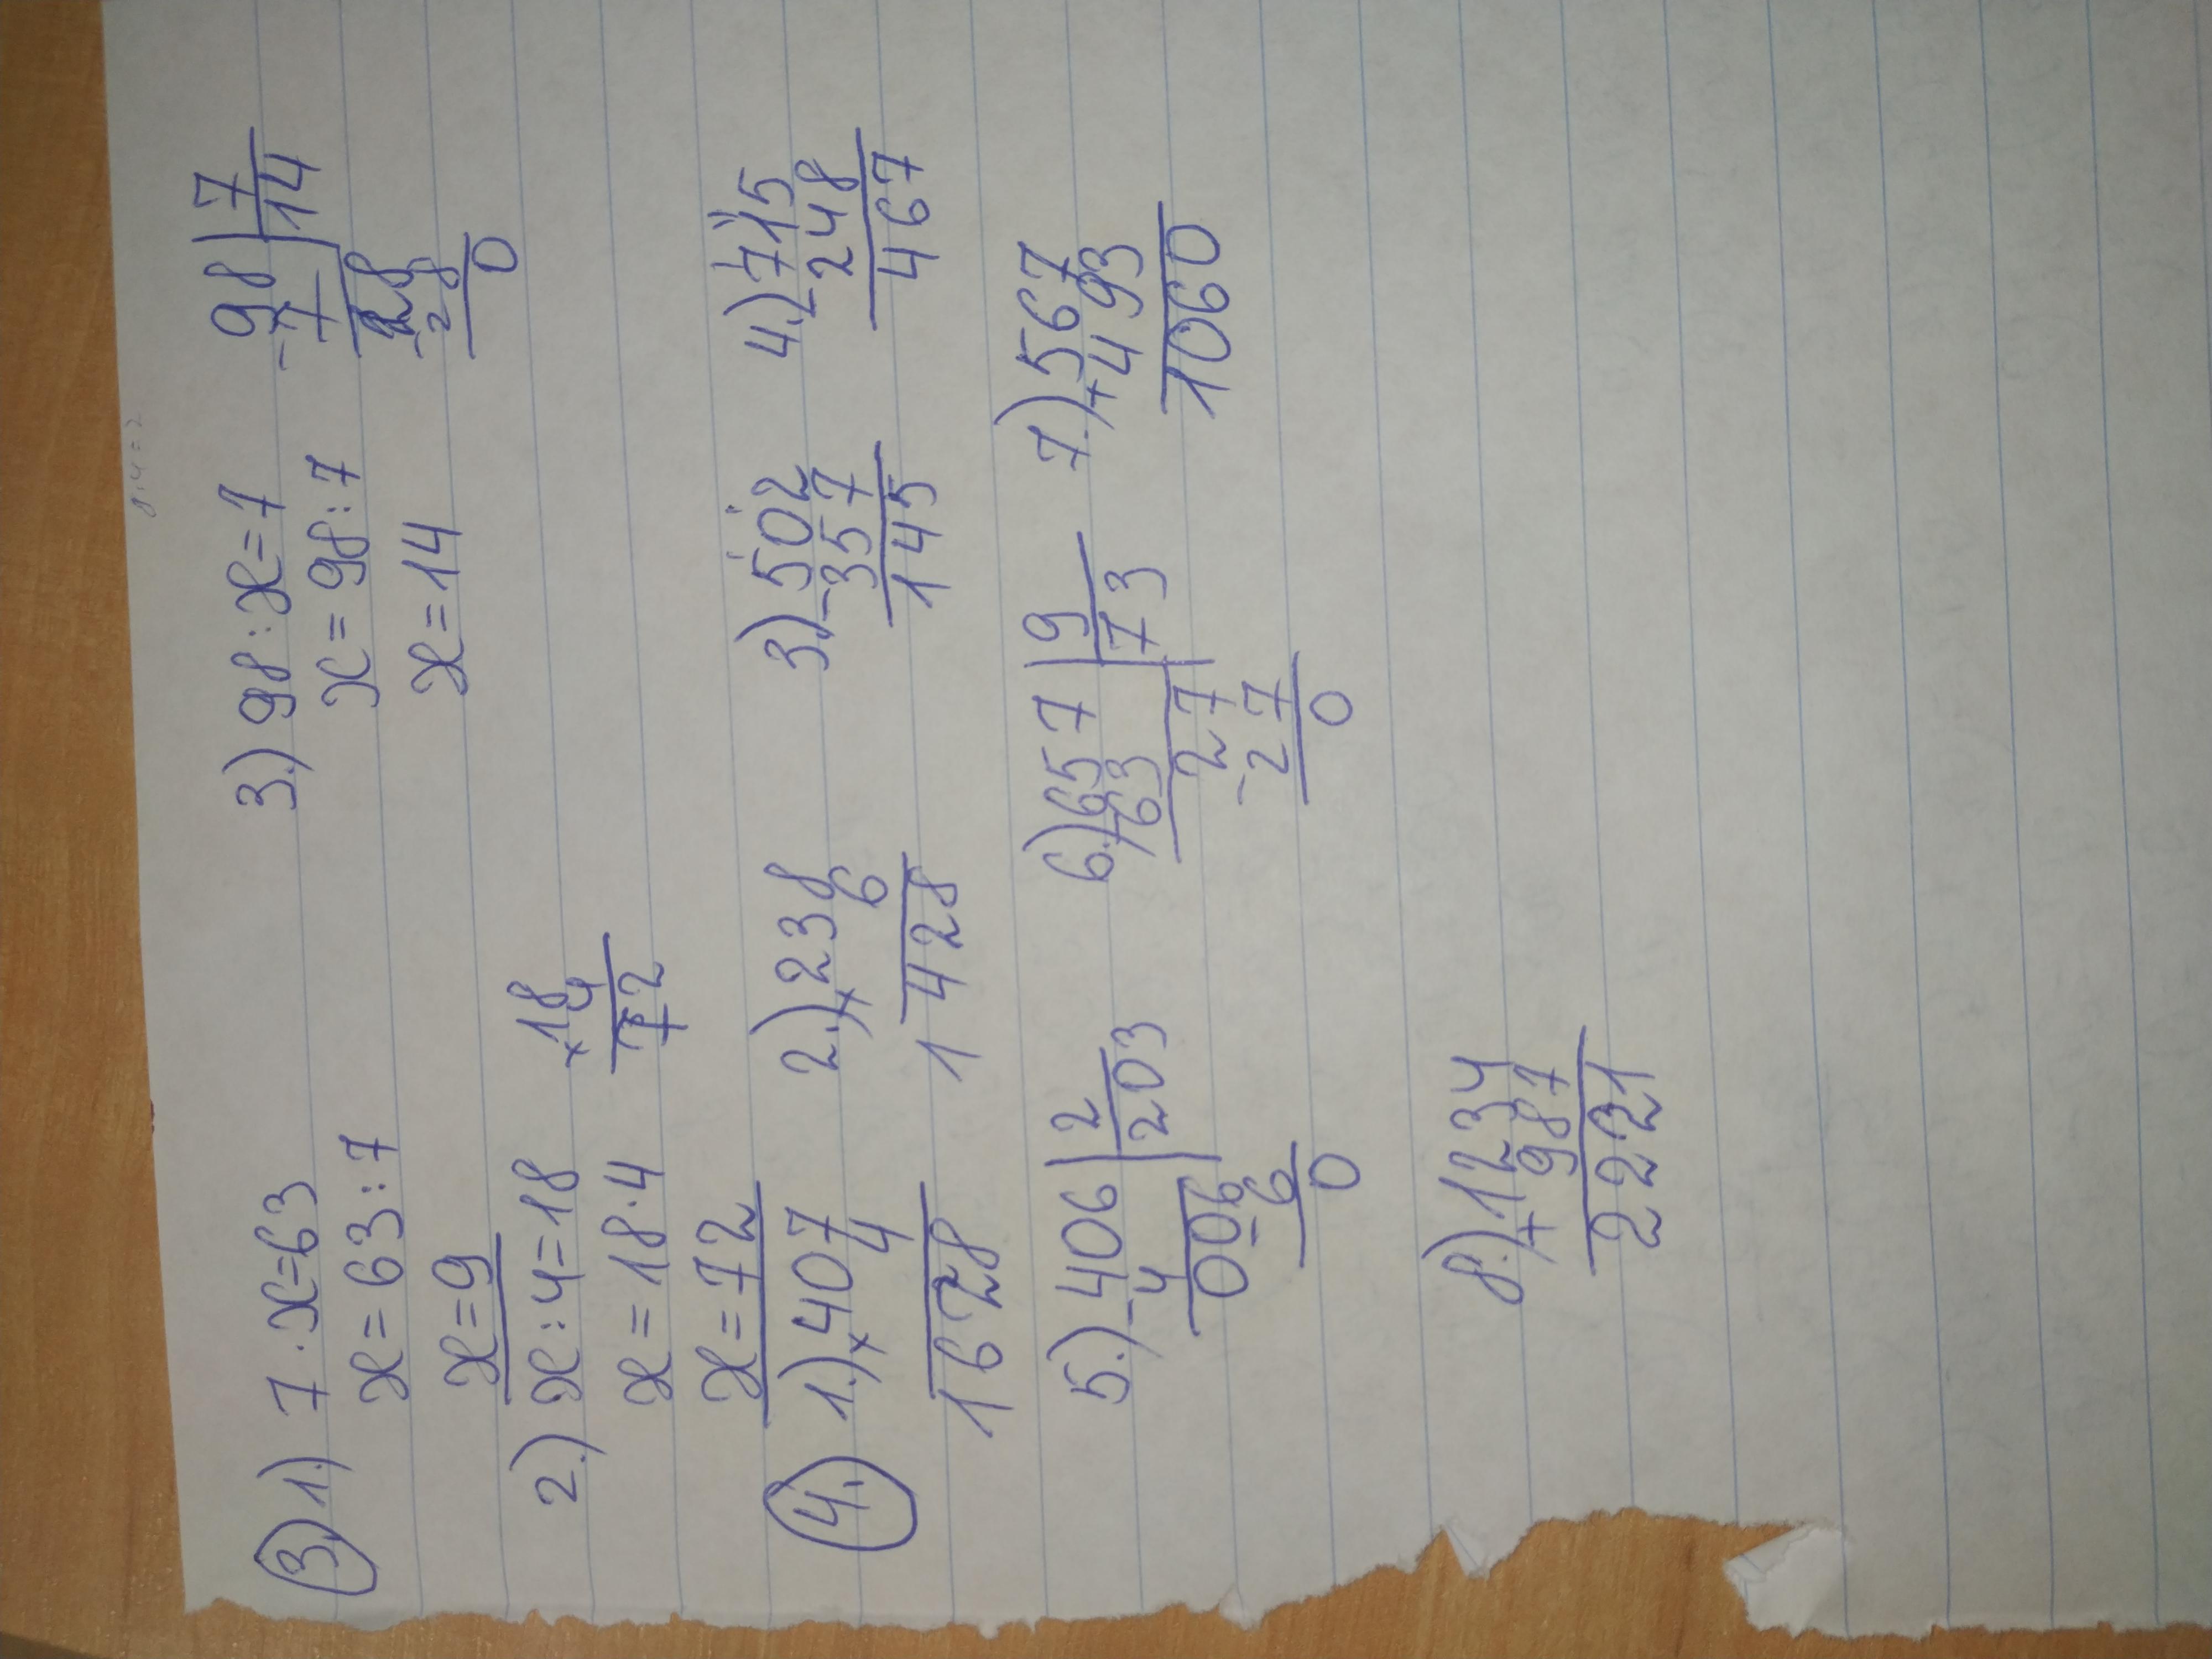 3. 1.) 7·x=63
x=63:7
x=9
2.) x:4=18
x=18·4
x=72
×18
4
72
3.) 98:x=7
x=98:7
x=14
98 | 7
-7 | 14
28
-28
0
4. 1.) ×407
4
1628
2.) ×238
6
1428
3.) -502
357
145
4.) -715
248
467
5.) -406 | 2
4 | 203
006
-6
0
6.) -657 | 9
63 | 73
27
-27
0
7.) +567
493
1060
8.) +1234
987
2221